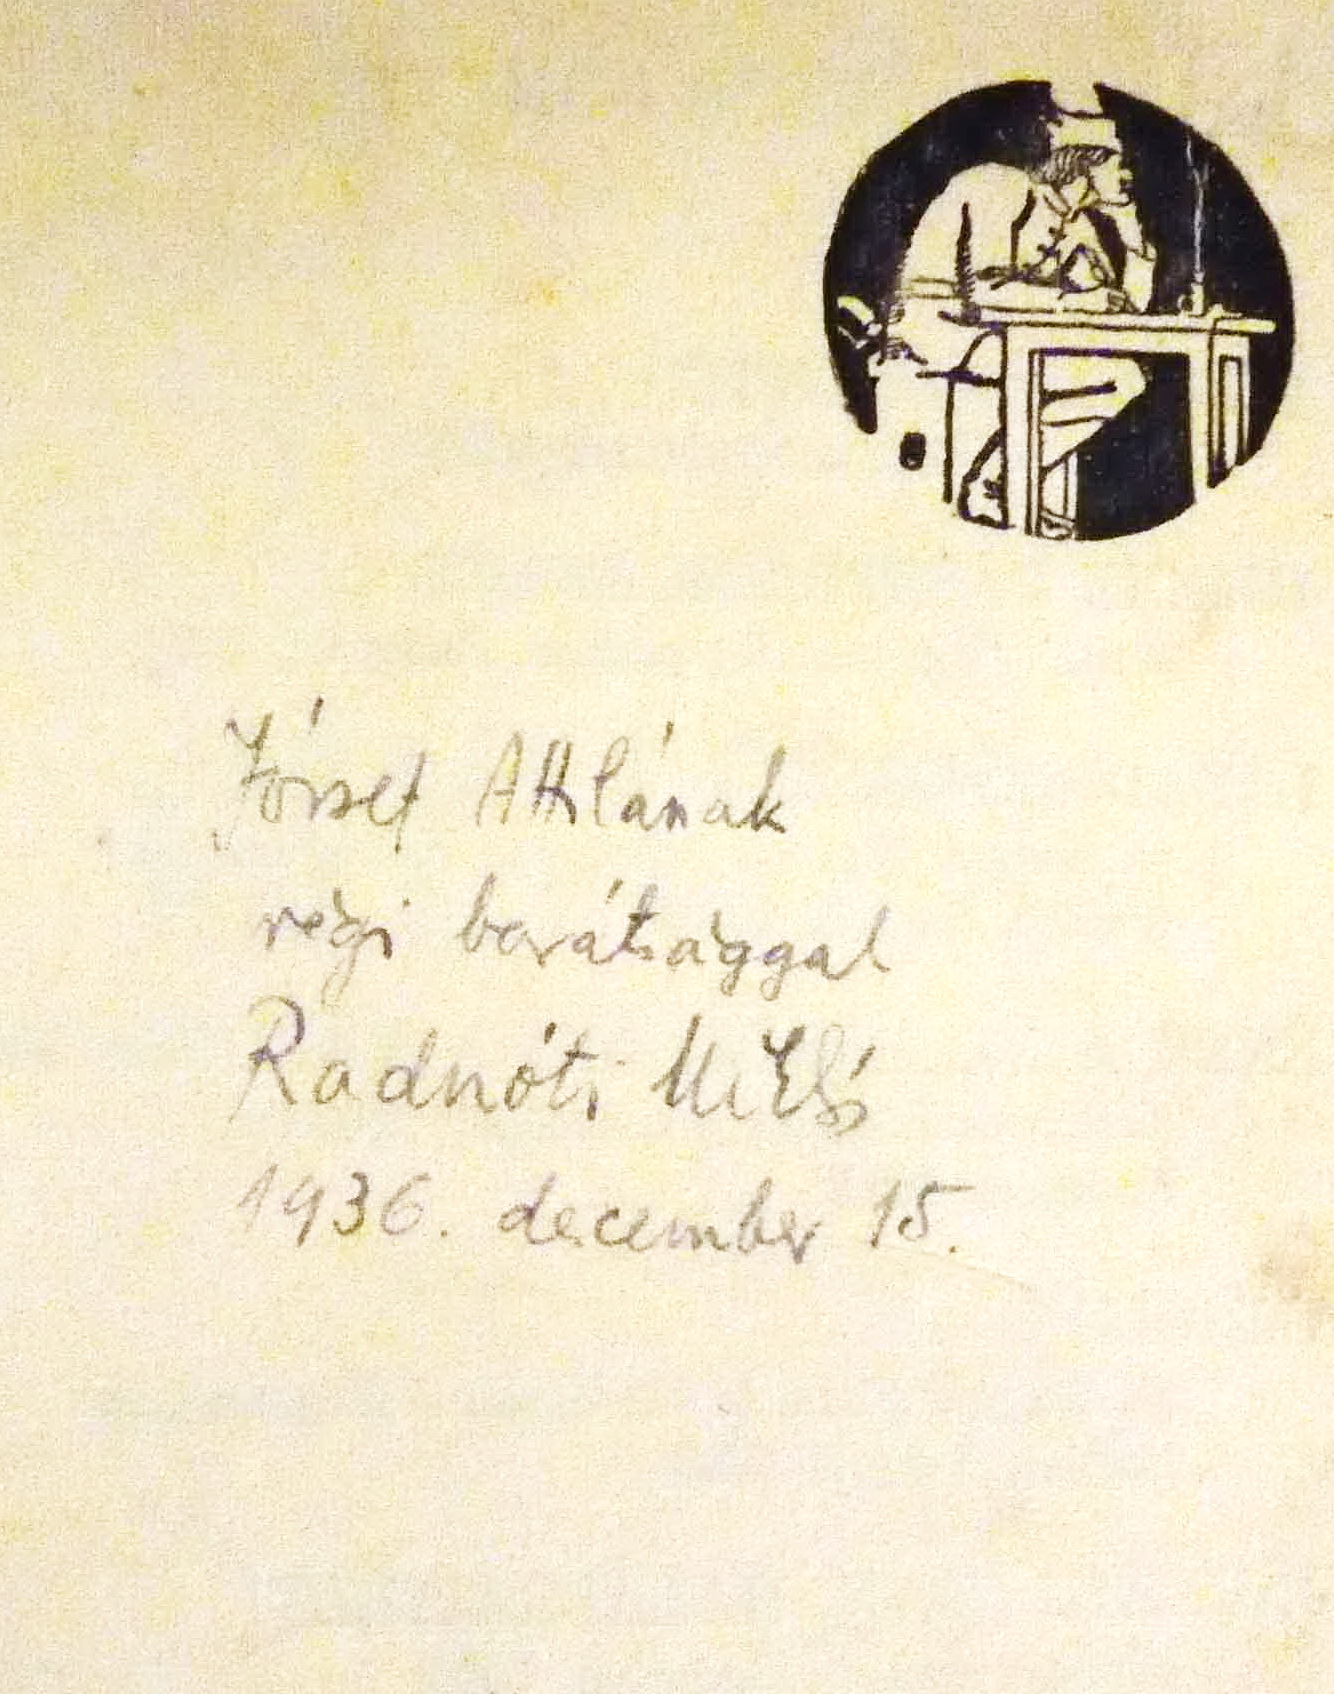 József Attilának
régi barátsággal
Radnóti Miklós
1936. december 15.